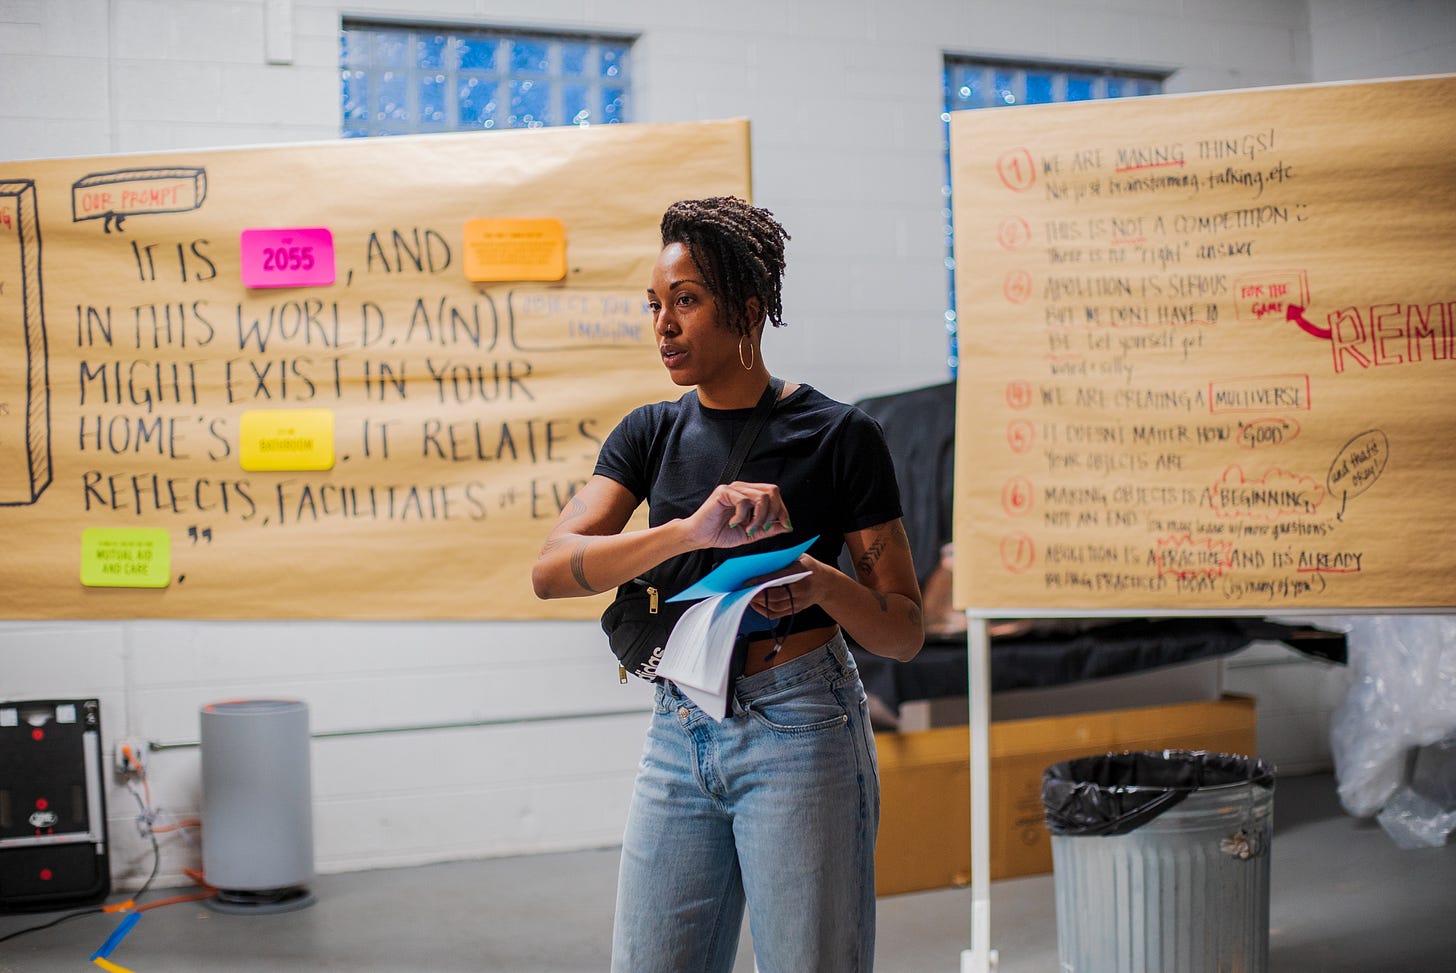 OUR PROMPT
"IT IS 2055, AND .
IN THIS WORLD, A(N) (OBJECT YOU
IMAGINE
MIGHT EXIST IN YOUR
HOME'S BATHROOM. IT RELATES
REFLECTS, FACILITATES
MUTUAL AID
AND CARE."
adidas
1 WE ARE MAKING THINGS!
Not just brainstorming, talking, etc
2 THIS IS NOT A COMPETITION :)
there is no "right" answer
3 ABOLITION IS SERIOUS
BUT WE DON'T HAVE TO
BE let yourself get
weird + silly
FOR THE
GAME
REM
4 WE ARE CREATING A MULTIVERSE
5 IT DOESN'T MATTER HOW "GOOD"
YOUR OBJECTS ARE
6 MAKING OBJECTS IS A BEGINNING,
NOT AN END. (you may leave w/more questions)
and that's
okay!
7 ABOLITION IS A PRACTICE AND IT'S ALREADY
BEING PRACTICED TODAY (by many of you!)